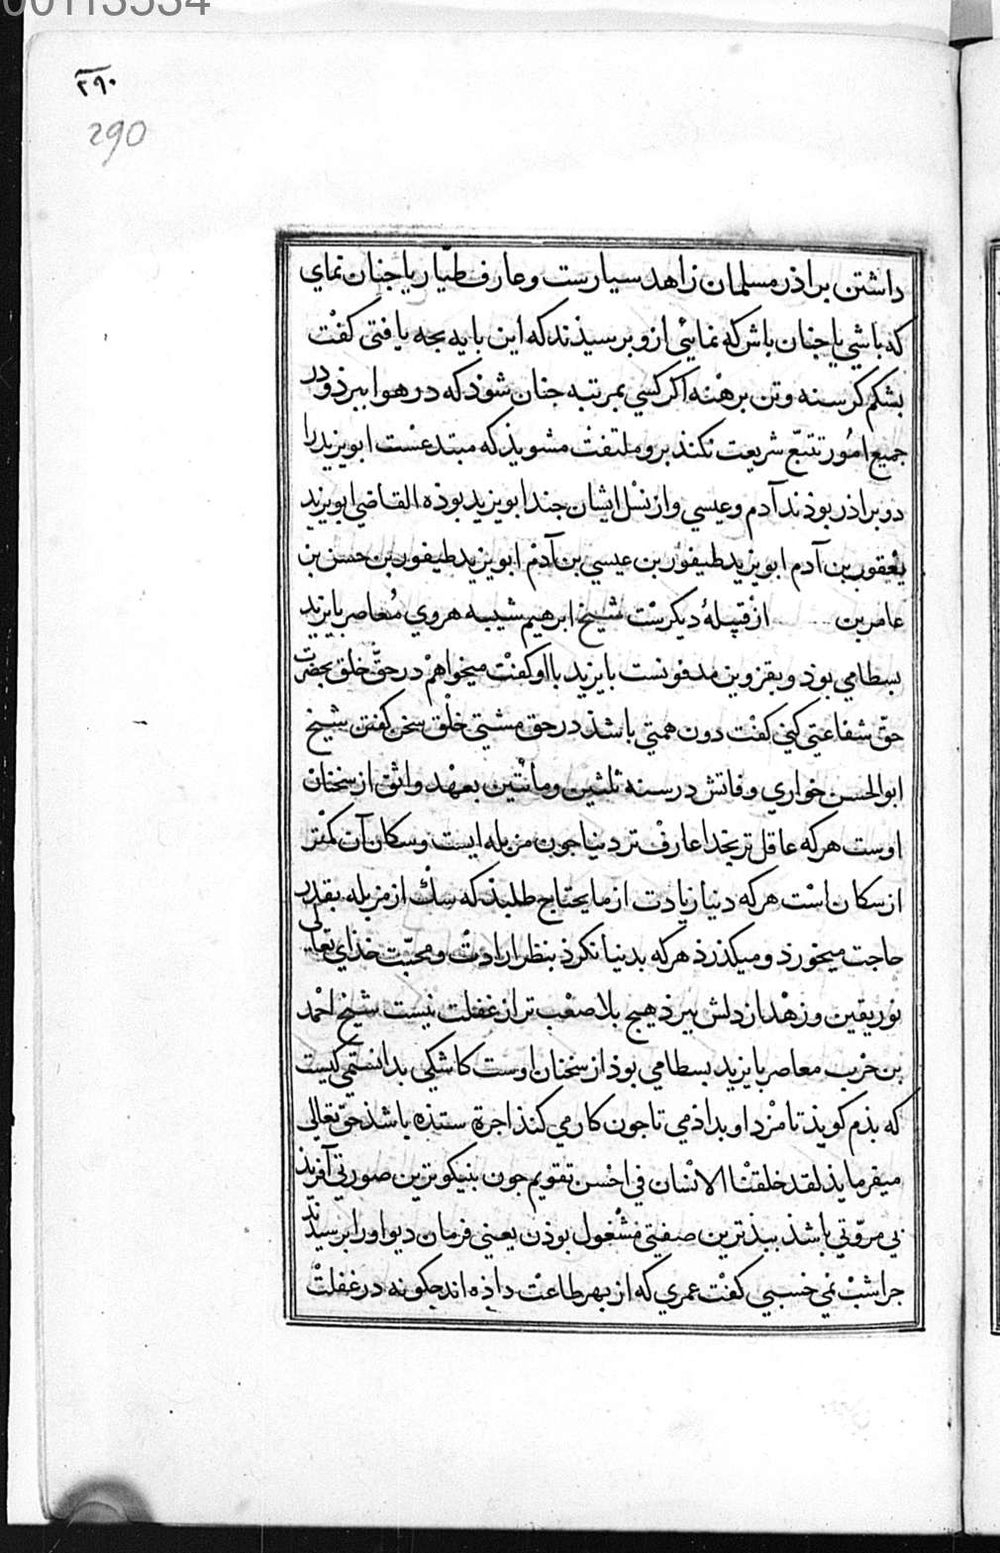 00113534
۲۹۰
290
داشتن براذر مسلمان زاهد سیارست و عارف طیار یا جنان نمای
که باشی یا جنان باش که نمائی ازو برسیذند که این بایه بجه یافتی کفت
بشکم کرسنه و تن برهنه اکر کسی بمرتبه جنان شوذ که در هوا ببرذ و در
جمیع امور تتبّع شریعت نکند برو ملتفت مشویذ که مبتدعست ابویزید را
دو براذر بوذند آدم و عیسی و از نسل ایشان جند ابویزید بوذه القاضی ابویزید
یعقوب بن آدم ابویزید طیفور بن عیسی بن آدم ابویزید طیفور بن حسن بن
عامر بن از قبیلهٔ دیکرست شیخ ابرهیم شیبه هروی مُعاصر بایزید
بسطامی بوذ و بقزوین مدفونست بایزید با او کفت میخواهم در حقّ خلق بحضرت
حقّ شفاعتی کنی کفت دون همتی باشذ در حق مشتی خلق سخن کفتن شیخ
ابوالحسن خواری وفاتش در سنه ثلثین و مائتین بعهد واثق از سخنان
اوست هر که عاقل تر بخدا عارف تر دنیا جون مزبله ایست و سکان آن کمتر
از سکان است هر که دنیا زیادت از مایحتاج طلبذ که سك از مزبله بقدر
حاجت میخورذ و میکذرذ هر که بدنیا نکرذ بنظر ارادت و محبّت خذای تعالی
نور یقین و زهد از دلش ببرذ هیج بلا صعب تر از غفلت نیست شیخ احمد
بن حرب معاصر بایزید بسطامی بوذ از سخنان اوست کاشکی بدانستمی کیست
که بذم کویذ تا مزد او بداذمی تا جون کار می کند اجرة ستذه باشذ حقّ تعالی
میفرمایذ لقد خلقنا الانسان فی احسن تقویم جون بنیکوترین صورتی آفریذ
بی مروّتی باشذ ببذترین صفتی مشغول بوذن یعنی فرمان دیو او را برسیذند
جرا شب نمی خسبی کفت عمری که از بهر طاعت داذه اند جکونه در غفلت